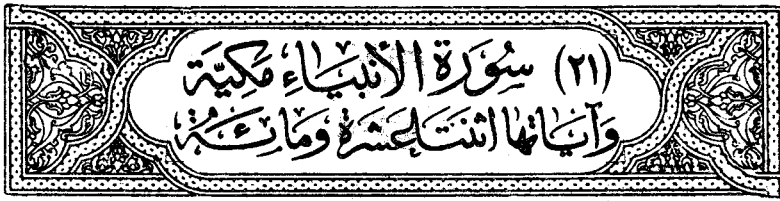 (٢١) سُورَة الأنبيَاءِ مَكيَّة
وَآيَاتها اثنَتَا عَشرَة وَمائِة